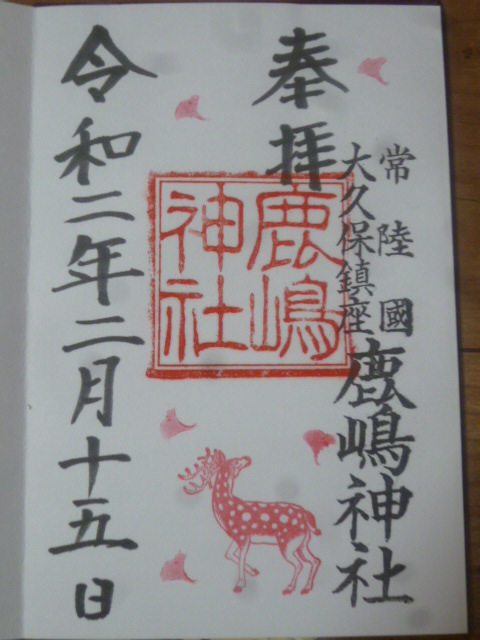 奉拝
常陸國
大久保鎮座
鹿嶋神社
鹿嶋
神社
令和二年二月十五日